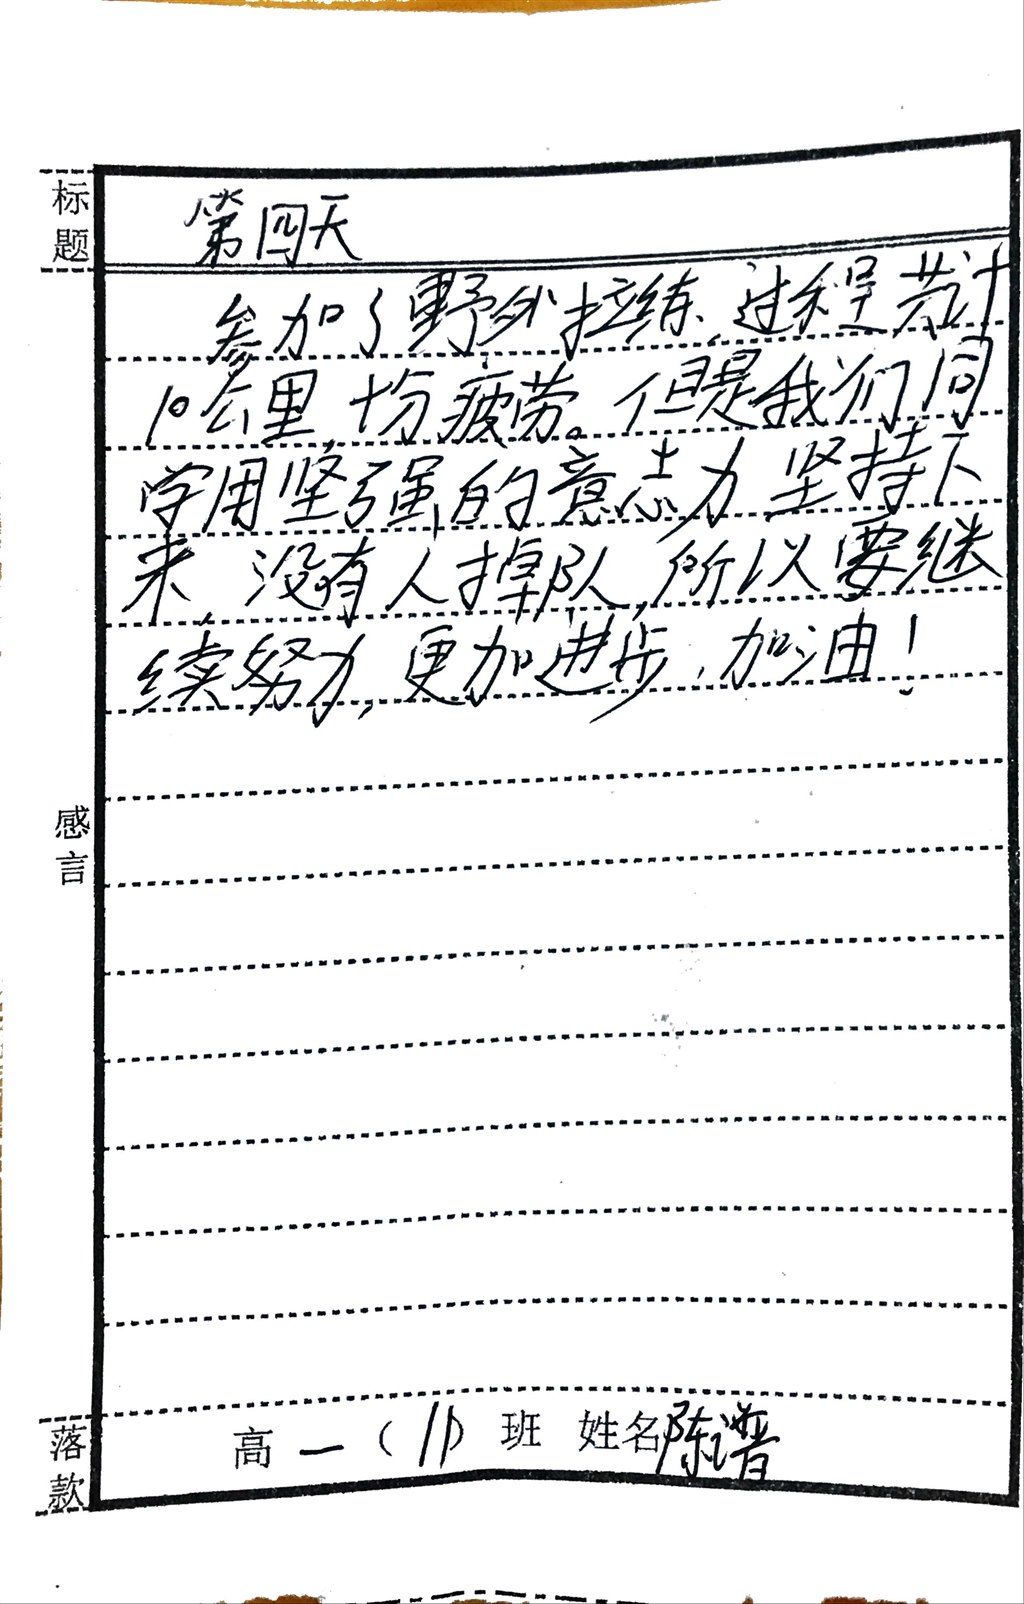 标题
第四天
参加了野外拉练,过程共计
10公里,十分疲劳。但是我们同
学用坚强的意志力坚持下
来,没有人掉队,所以要继
续努力,更加进步,加油!
感言
落款
高一(11)班 姓名陈谱